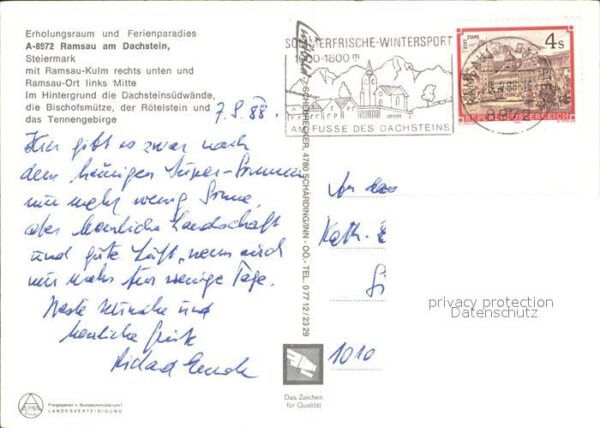 Erholungsraum und Ferienparadies
A-8972 Ramsau am Dachstein,
Steiermark
mit Ramsau-Kulm rechts unten und
Ramsau-Ort links Mitte
Im Hintergrund die Dachsteinsüdwände,
die Bischofsmütze, der Rötelstein und
das Tennengebirge
7.9.88.
Hier gibt es zwar nach
dem heurigen Super-Sommer
nur mehr wenig Sonne,
aber herrliche Landschaft
und gute Luft, wenn auch
nur mehr für wenige Tage.
Beste Wünsche und
herzliche Grüße
Richard
SOMMERFRISCHE-WINTERSPORT
1000-1800 m
AM FUSSE DES DACHSTEINS
4 S
REPUBLIK ÖSTERREICH
4780 SCHÄRDING/INN - OÖ. - TEL. 077 12/23 29
An das
Kath.
1010
privacy protection
Datenschutz
Das Zeichen
für Qualität
ALPINE
Freigegeben v. Bundesministerium f.
LANDESVERTEIDIGUNG